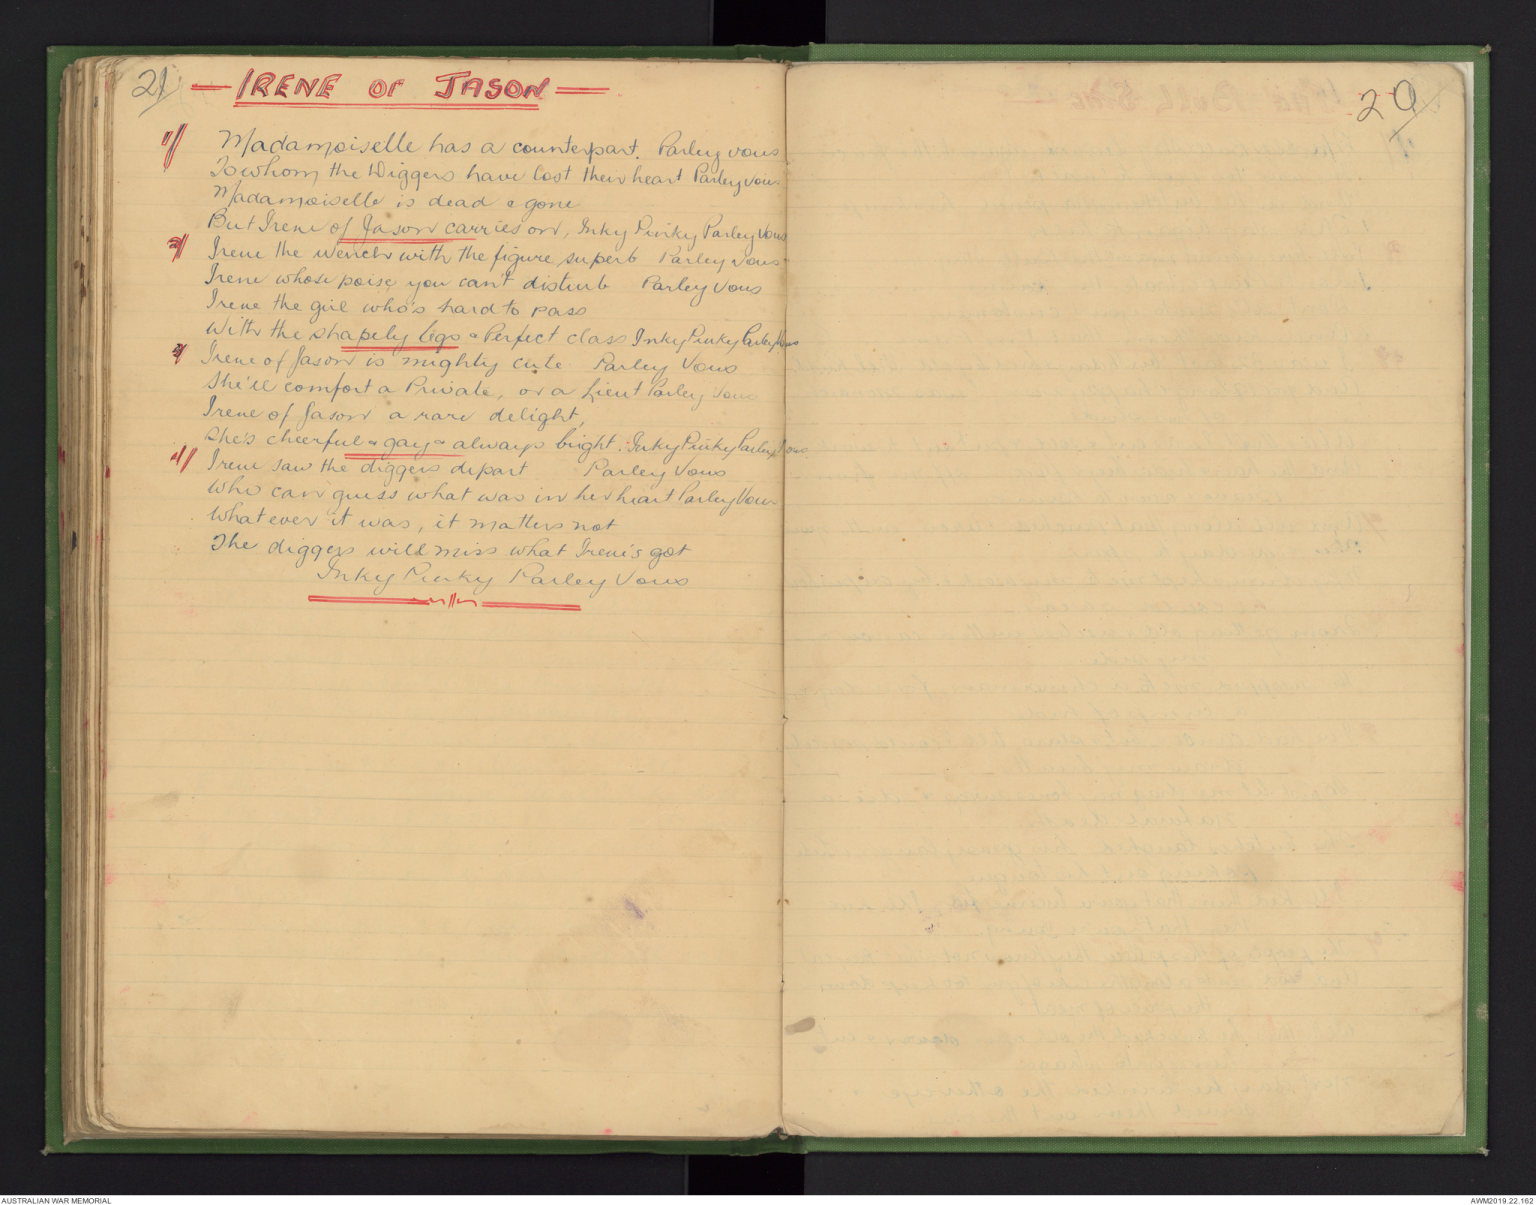 21
— IRENE or JASON —
1/ Madamoiselle has a counterpart. Parley vous
To whom the Diggers have lost their heart Parley vous
Madamoiselle is dead & gone
But Irene of Jason carries on, Inky Pinky Parley Vous
2/ Irene the wench with the figure superb Parley vous
Irene whose poise you can't disturb Parley Vous
Irene the girl who's hard to pass
With the shapely legs & Perfect class Inky Pinky Parley Vous
3/ Irene of Jason is mighty cute. Parley Vous
She'll comfort a Private, or a Lieut Parley Vous
Irene of Jason a rare delight,
She's cheerful & gay & always bright. Inky Pinky Parley Vous
4/ Irene saw the diggers depart Parley Vous
Who can guess what was in her heart Parley Vous
Whatever it was, it matters not
The diggers will miss what Irene's got
Inky Pinky Parley Vous
20
AUSTRALIAN WAR MEMORIAL
AWM2019.22.162